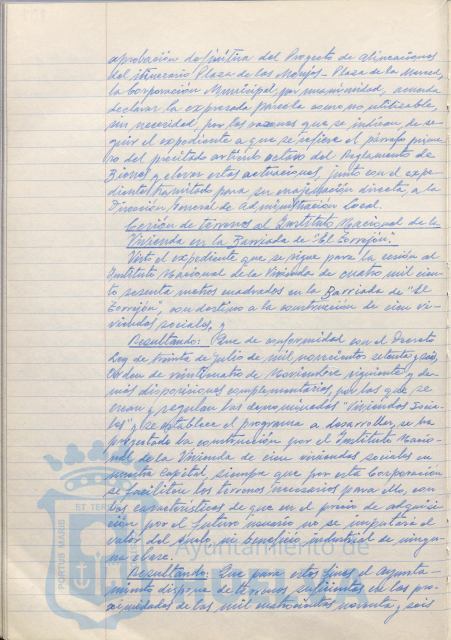 aprobación definitiva del Proyecto de alineaciones
del itinerario Plaza de las Monjas - Plaza de la Merced,
la Corporación Municipal, por unanimidad, acuerda
declarar la expresada parcela como no utilizable,
sin necesidad, por las razones que se indican de se-
guir el expediente a que se refiere el párrafo prime-
ro del precitado artículo octavo del Reglamento de
Bienes y elevar estas actuaciones, junto con el expe-
diente tramitado para su enajenación directa, a la
Dirección General de Administración Local.
Cesión de terrenos al Instituto Nacional de la
Vivienda en la Barriada de "El Torrejón".
Visto el expediente que se sigue para la cesión al
Instituto Nacional de la Vivienda de cuatro mil cien-
to sesenta metros cuadrados en la Barriada de "El
Torrejón", con destino a la construcción de cien vi-
viendas sociales, y
Resultando: Que de conformidad con el Decreto
Ley de treinta de julio de mil novecientos setenta y seis,
Orden de veinticuatro de Noviembre siguiente y de-
más disposiciones complementarias, por las que se
crean y regulan las denominadas "Viviendas Socia-
les" y se establece el programa a desarrollar, se ha
proyectado la construcción por el Instituto Nacio-
nal de la Vivienda de cien viviendas sociales en
nuestra Capital siempre que por esta Corporación
se faciliten los terrenos necesarios para ello, con
las características de que en el precio de adquisi-
ción por el futuro usuario no se imputará el
valor del suelo, ni beneficio industrial de ningu-
na clase.
Resultando: Que para estos fines el Ayunta-
miento dispone de terrenos suficientes en las pro-
ximidades de las mil cuatrocientas noventa y seis
Ayuntamiento de
PORTUS MARIS
ET TERRAE